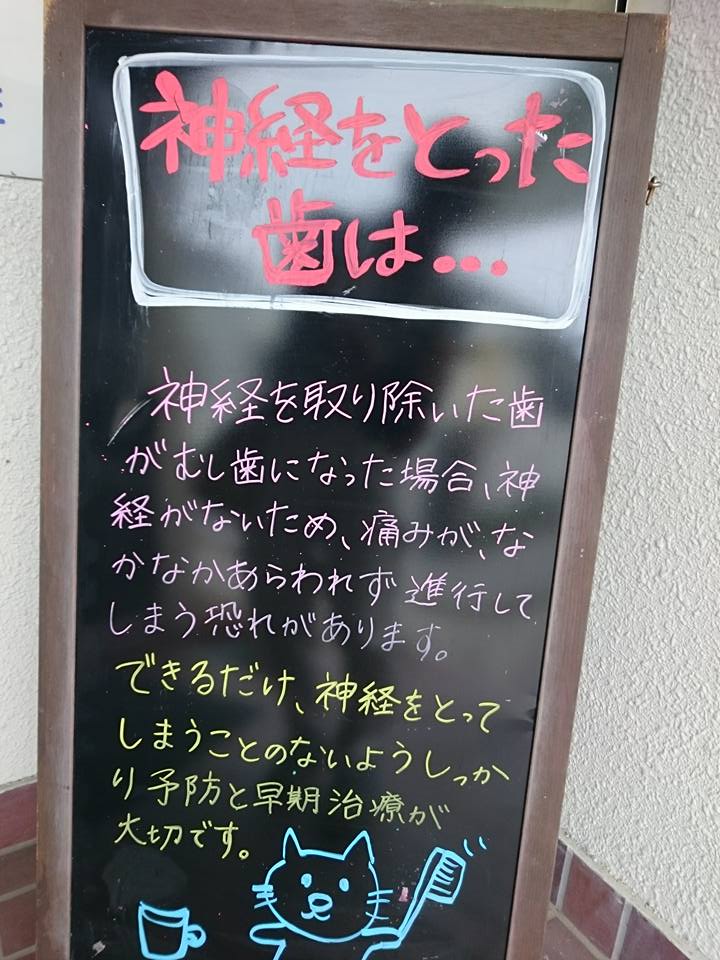 神経をとった
歯は...
神経を取り除いた歯
がむし歯になった場合、神
経がないため、痛みが、な
かなかあらわれず進行して
しまう恐れがあります。
できるだけ、神経をとって
しまうことのないようしっか
り予防と早期治療が
大切です。